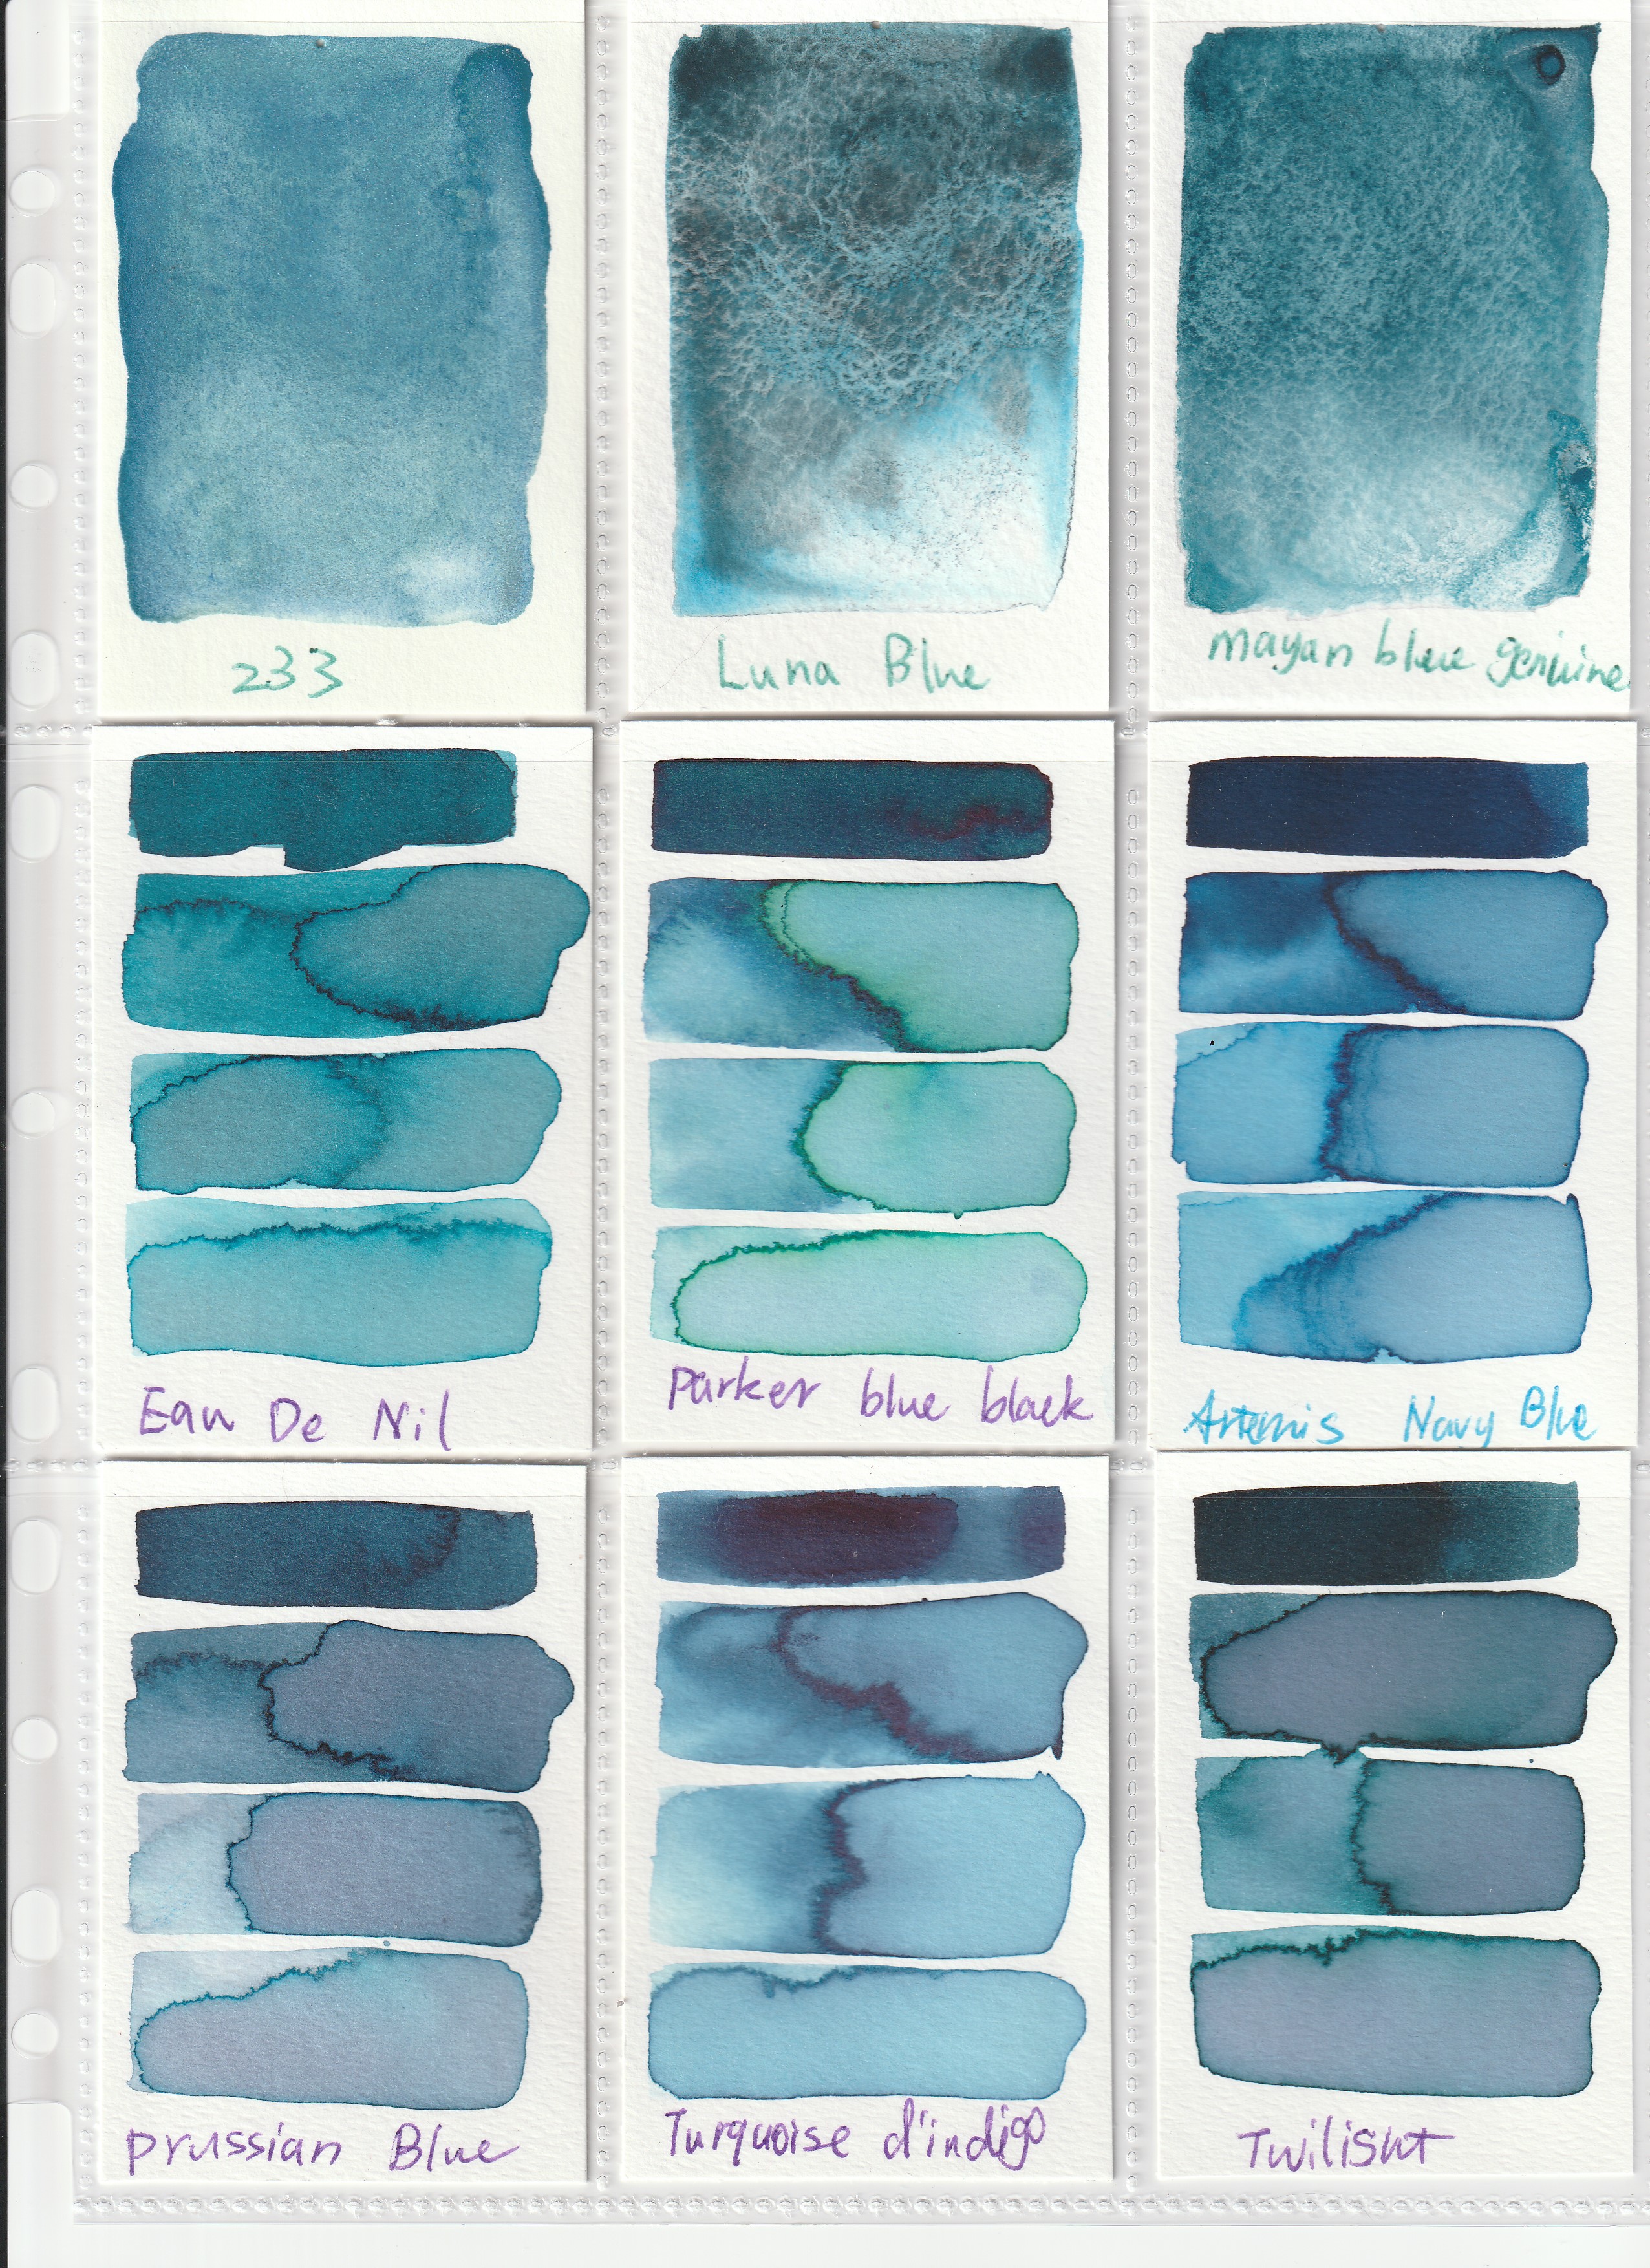 233
Luna Blue
mayan blue genuine
Eau De Nil
Parker blue black
Artemis Navy Blue
prussian Blue
Turquoise d'indigo
Twilight